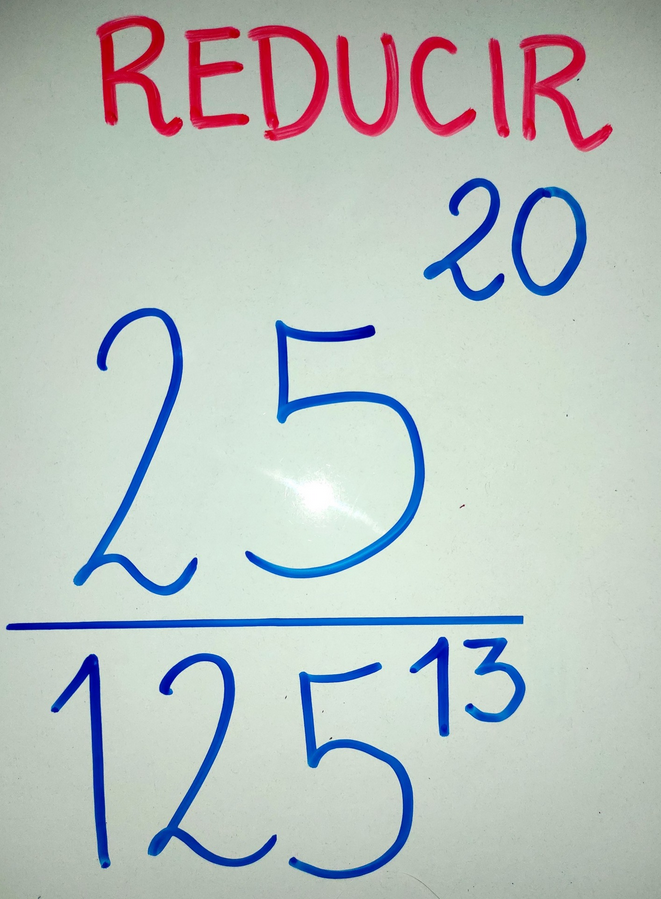 REDUCIR
25²⁰
125¹³